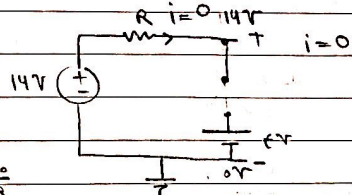 R i=0 14V
+ i=0
14V + -
0V -